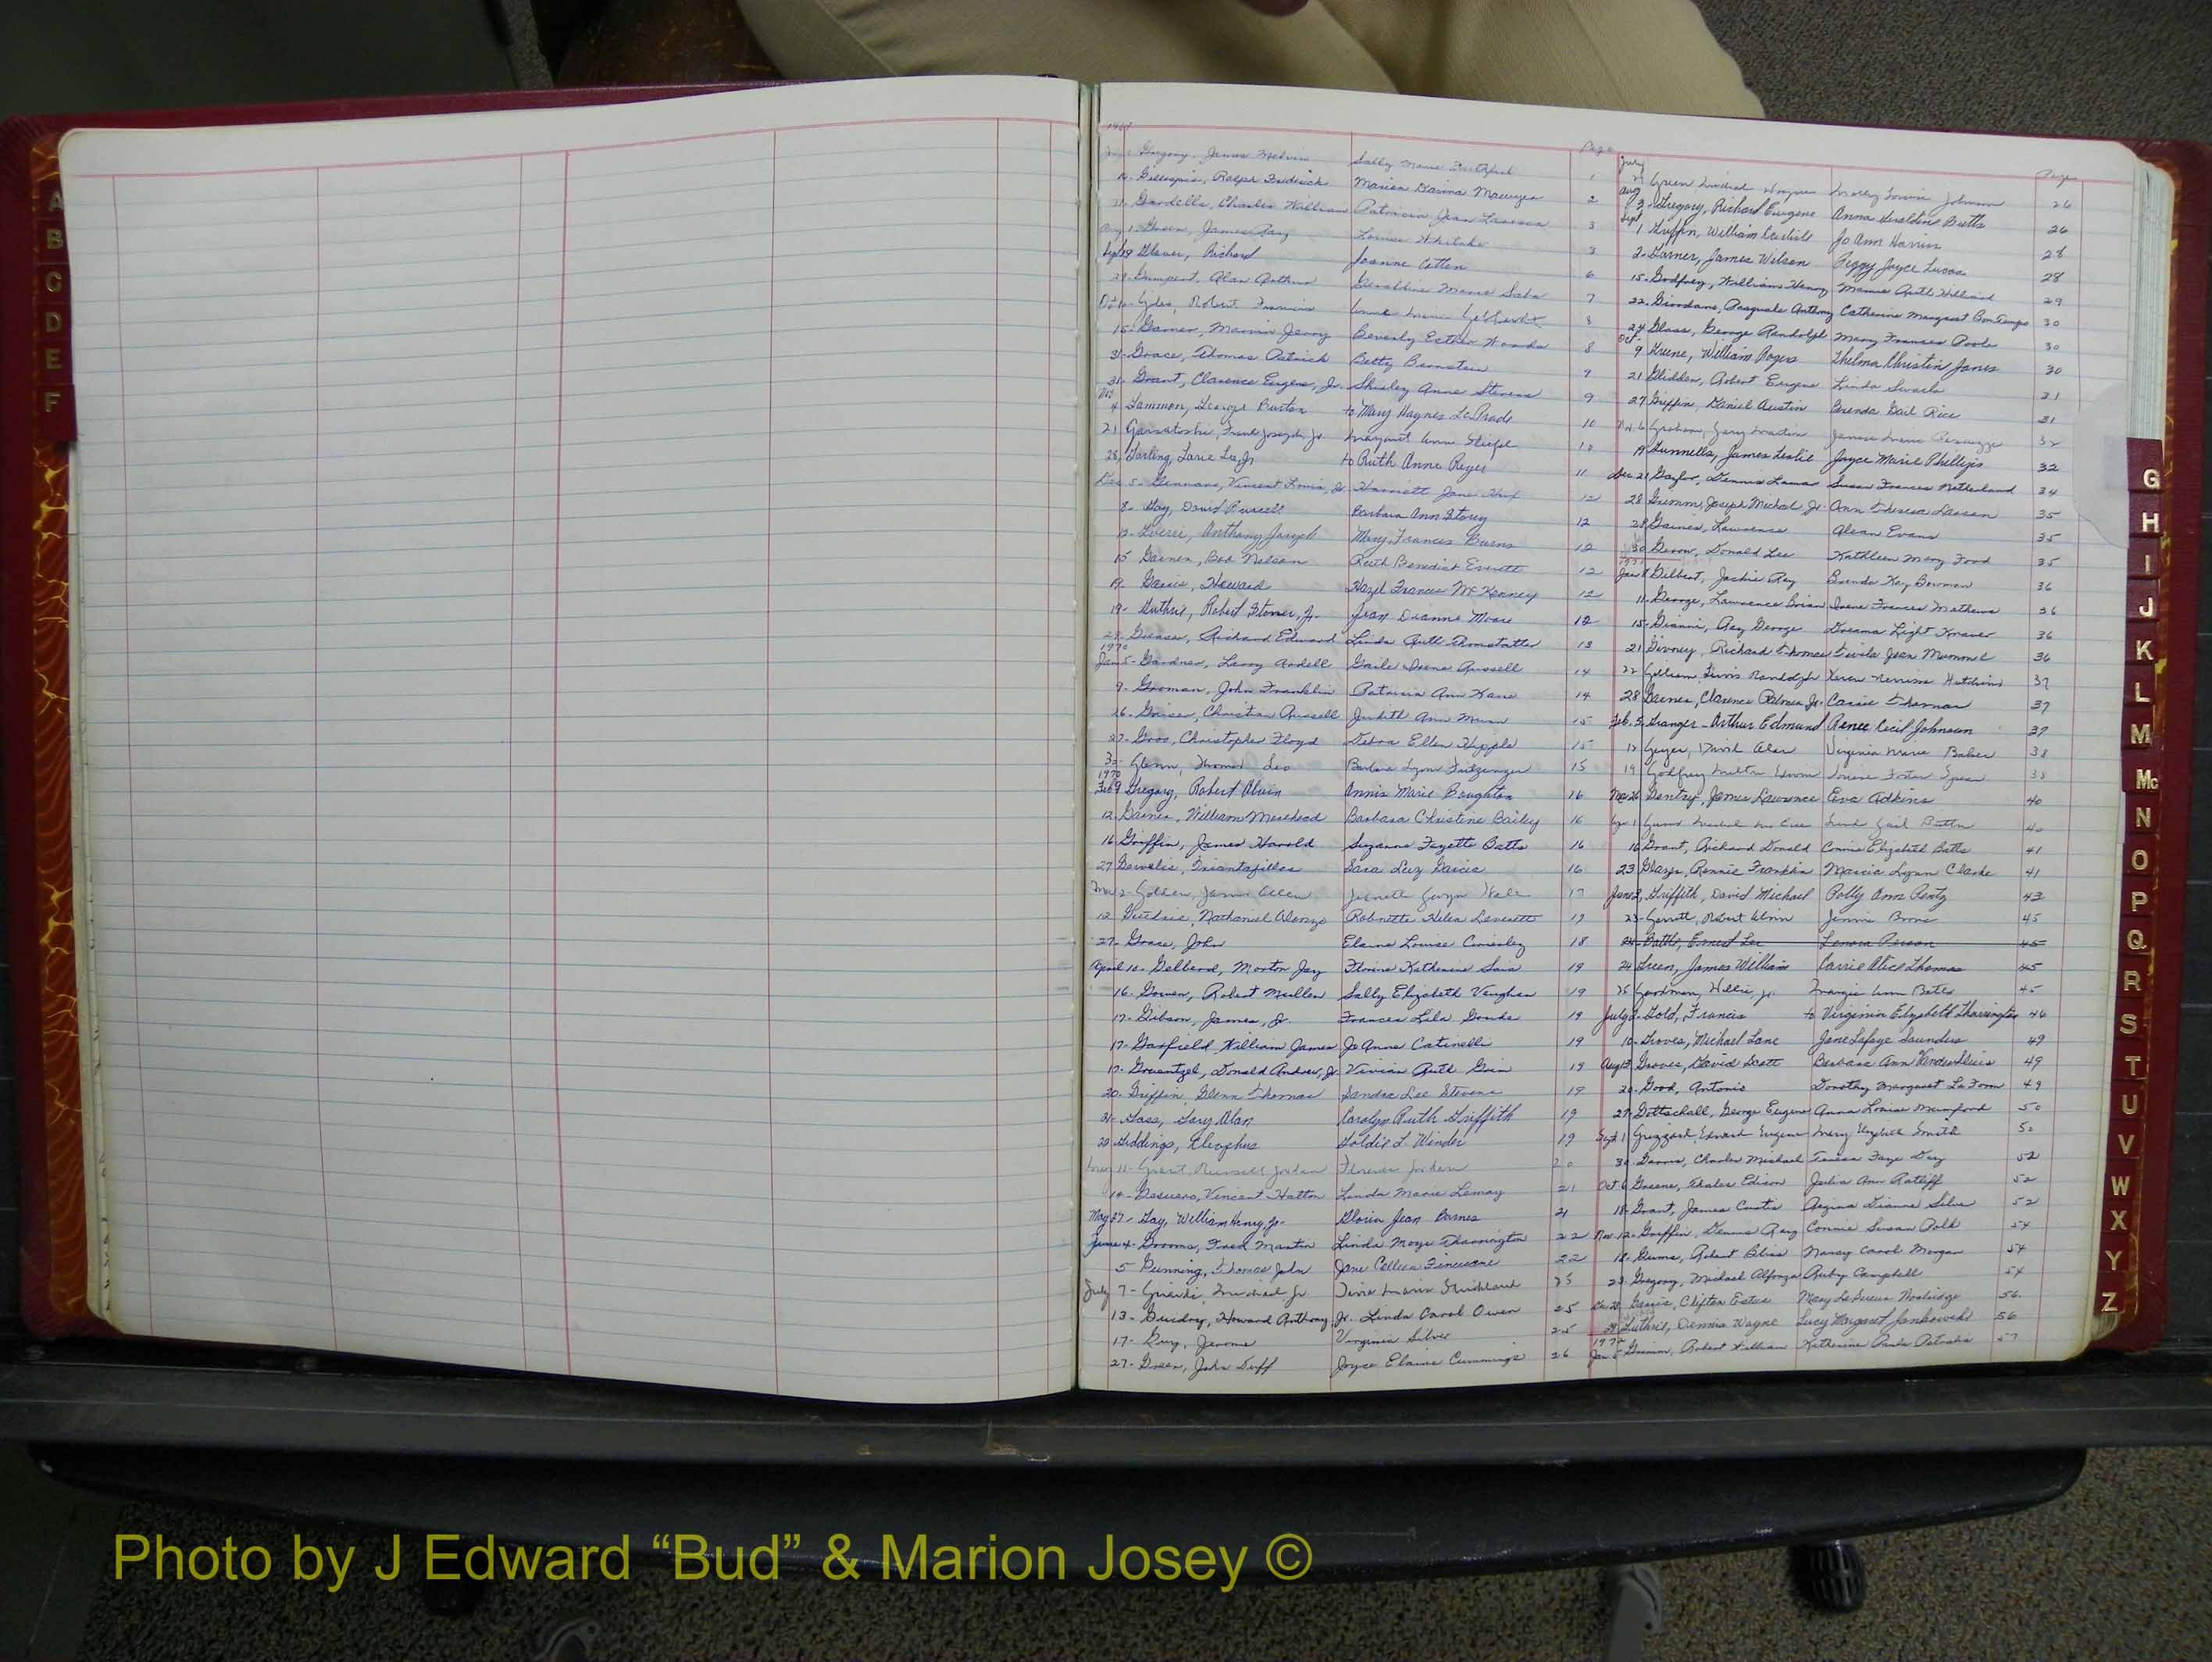 A
B
C
D
E
F
1969
Page
Gregory, James Melvin Sally Marie 1
Gillespie, Ralph Fredrick Marion 2
Gardella, Charles William Patricia Jean 3
Aug 1- Green, James Ray Louise Whitaker 3
Sept 29 Glover, Richard Joanne Cotten 6
29- Gumpert, Alan Arthur Geraldine Marie 7
Oct 10- Giles, Robert Francis Anne Marie 8
15- Garner, Marvin Jerry Beverly Esther Woods 8
31- Grace, Thomas Patrick Betty Bernstein 9
31- Grant, Clarence Eugene, Jr. Shirley Anne Stevens 9
Nov
4 Gammon, George Burton to Mary Haynes LaPrade 10
21 Frank Joseph, Jr. Margaret Ann 10
28, Garling, Larie Lee, Jr to Ruth Anna Reyes 11
Dec 5- Gennaro, Vincent Louis, Jr. Harriett Jane 12
8- Gay, David Purcell Barbara Ann Storey 12
12- Anthony Joseph Mary Frances Burns 12
15 Garner, Bob Nelson Ruth Benedict Everett 12
19. Garris, Howard Hazel Frances McKenney 12
19- Guthrie, Robert Stoner, Jr. Jean Dianne Moore 12
29- Greaser, Richard Edward Linda Ruth 13
1970
Jan 5- Gardner, Larry Ardell Gaile Irene Russell 14
9- Groman, John Franklin Patricia Ann Kane 14
16- Christian Russell Judith Ann 15
27- Gros, Christopher Floyd Debra Ellen Hipple 15
30- Glenn, Thomas Leo Barbara Lynn 15
1970
Feb 9 Gregory, Robert Alvin Annie Marie Boughton 16
12. Gaines, William Muirhead Barbara Christine Bailey 16
16. Griffin, James Harold Suzanne Fayette Batts 16
27 Triantafillos Sara Luz Garcia 16
Mar 2- Golden, James Allen Jeanette Gwyn Hale 17
12 Guthrie, Nathaniel Alonzo Robnette Helen Leverette 17
27- Grace, John Elaine Louise 18
April 10- Gelband, Morton Jay Florine Katherine 19
16- Gowen, Robert Mullen Sally Elizabeth Vaughan 19
17- Gibson, James, Jr. Frances Lila 19
17- Garfield William James Jo Anne Catinelli 19
17- Gruentzel, Donald Andrew, Jr. Vivian Ruth 19
20- Griffin, Glenn Thomas Sandra Lee Stevens 19
21- Gass, Gary Alan Carolyn Ruth Griffith 19
29 Giddings, Cleophus Goldie L. Winder 19
May 11- Grant, Russell Jordan Florence Jordan 20
14- Vincent Hatton Linda Marie Lemay 21
May 27- Gay, William Henry, Jr. Gloria Jean Barnes 21
June 4- Grooms, Fred Martin Linda Moye Tharrington 22
5 Gunning, Thomas John Jane Colleen 22
July 7- Girardi, Michael Jr. Tina Marie Strickland 25
13- Guidry, Howard Anthony, Jr. Linda Carol Owen 25
17- Guy, Jerome Virginia Silver 25
27- Green, John Duff Joyce Elaine Cummings 26
Page
July
Green Wayne Johnson 26
Aug
3- Gregory, Richard Eugene Anna Geraldine Butts 26
Sept
1 Griffin, William Jo Ann Harris 28
2- Garner, James Wilson Peggy Joyce Lucas 28
15- Godfrey, William Henry Mamie Ruth Hilliard 29
22. Giordano, Pasquale Anthony Catherine Margaret BonTempo 30
24 Glass, George Randolph Mary Frances Poole 30
Oct
9 Greene, William Roger Thelma Christin Jones 30
21 Glidden, Robert Eugene Linda 31
27 Griffin, Daniel Austin Brenda Gail Rice 31
Nov 6 Graham, Gary Martin Janice Marie 32
19 Gunnells, James Leslie Joyce Marie Phillips 32
Dec 21 Gaylor, Dennis Lamar Susan Frances Netherland 34
28 Grimm, Joseph Michael Jr. Ann Theresa 35
28 Gaines, Lawrence Alean Evans 35
30 Gerow, Donald Lee Kathleen Mary Food 35
1971
Jan 8 Gilbert, Jackie Ray Brenda Kay Bowman 36
11- George, Lawrence Brian Irene Frances Mathews 36
15- Gianni, Ray George Dreama Light 36
21 Givney, Richard Thomas Jean 36
22 Gilliam, Randolph Karen Hutchins 37
28 Garner, Clarence Palmer Jr. Carrie Thomas 37
Feb. 5 Granger- Arthur Edmund Renee Cecil Johnson 37
12 Geyer, David Alan Virginia Marie Baber 38
19 Godfrey Milton Louise Foster 38
Mar 26 Gentry, James Lawrence Eva Adkins 40
Apr 1 Linda Gail 40
16 Grant, Richard Donald Connie Elizabeth Batts 41
23 Glaze, Ronnie Franklin Marcia Lynn Clarke 41
June 2, Griffith, David Michael Polly Ann Pentz 43
23- Garrett, Robert Jennie 45
24- Battle, Ernest Lee Lenora Person 45
24 Green, James William Carrie Alice Thomas 45
25 Goodman, Willie, Jr. Margie Ann Bates 45
July 2- Gold, Francis to Virginia Elizabeth Tharrington 46
10- Groves, Michael Lane Jane Lafaye Saunders 49
Aug 13 Groves, David Scott Barbara Ann VanderSluis 49
20- Good, Antonio Dorothy Margaret La Torre 49
27- Gottschall, George Eugene Anna Louise Mumford 50
Sept 1 Grizzard, Edward Eugene Mary Elizabeth Smith 52
30- Garris, Charles Michael Teresa Faye Day 52
Oct 6 Greene, Thales Edison Julia Ann Ratliff 52
18- Grant, James Curtis Regina Dianne Silver 52
Nov 12- Griffin, Dennis Ray Connie Susan Polk 54
18- Gums, Robert Bliss Nancy Carol Morgan 54
23- Gregory, Michael Alfonza Ruby Campbell 54
Dec 20 Garris, Clifton Estus Mary 56
28 Guthrie, Dennis Wayne Lucy Margaret Jankowski 56
1972
Jan 5 Grimm, Robert William Katherine Paula 57
G
H
I
J
K
L
M
Mc
N
O
P
Q
R
S
T
U
V
W
X
Y
Z
Photo by J Edward “Bud” & Marion Josey ©